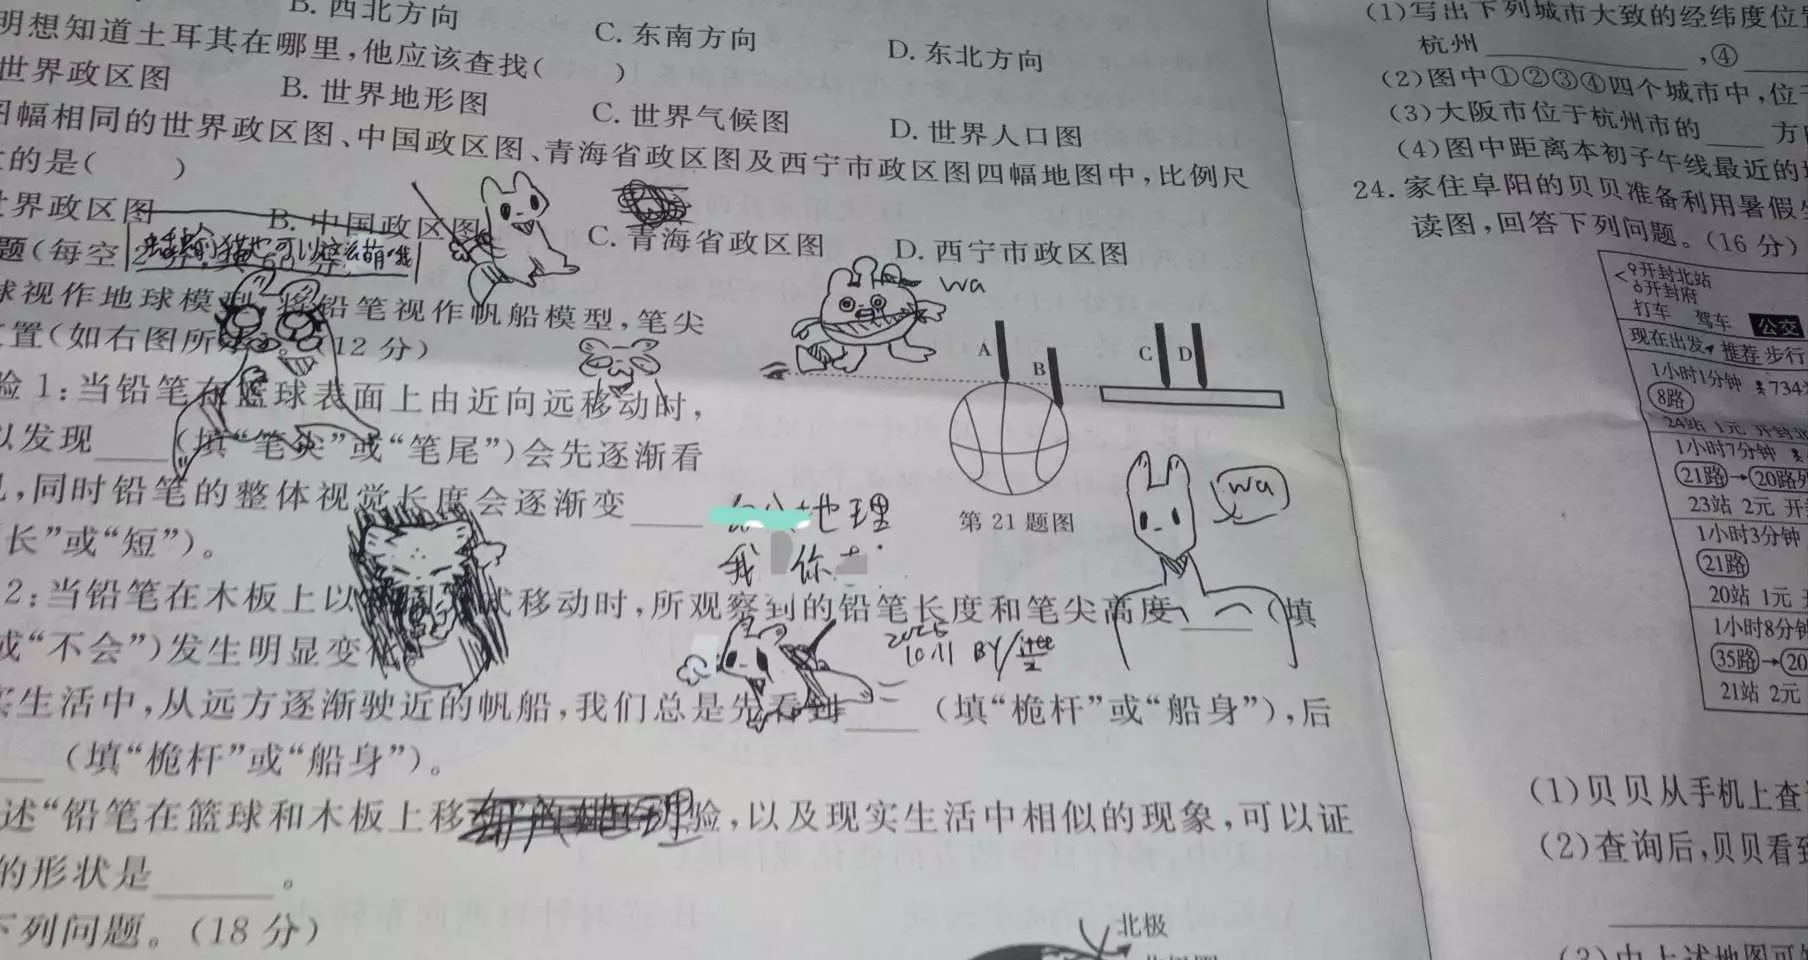 B. 西北方向
C. 东南方向
D. 东北方向
明想知道土耳其在哪里,他应该查找(　　)
世界政区图
B. 世界地形图
C. 世界气候图
D. 世界人口图
图幅相同的世界政区图、中国政区图、青海省政区图及西宁市政区图四幅地图中,比例尺
的是(　　)
世界政区图
B. 中国政区图
C. 青海省政区图
D. 西宁市政区图
题(每空 2
球视作地球模型,将铅笔视作帆船模型,笔尖
置(如右图所 (12 分)
验 1:当铅笔在篮球表面上由近向远移动时,
以发现____(填“笔尖”或“笔尾”)会先逐渐看
,同时铅笔的整体视觉长度会逐渐变____
长”或“短”)。
2:当铅笔在木板上以 式移动时,所观察到的铅笔长度和笔尖高度____(填
或“不会”)发生明显变
实生活中,从远方逐渐驶近的帆船,我们总是先看到____(填“桅杆”或“船身”),后
____(填“桅杆”或“船身”)。
述“铅笔在篮球和木板上移 验,以及现实生活中相似的现象,可以证
的形状是______。
下列问题。(18 分)
wa
A
B
C
D
第 21 题图
wa
地理
我 你
10.11 BY
北极
(1)写出下列城市大致的经纬度位置
杭州________,④
(2)图中①②③④四个城市中,位于
(3)大阪市位于杭州市的____方
(4)图中距离本初子午线最近的
24. 家住阜阳的贝贝准备利用暑假
读图,回答下列问题。(16 分)
开封北站
开封府
打车 驾车 公交
现在出发 推荐 步行
1小时1分钟 734
8路
24站 1元
1小时7分钟
21路→20路
23站 2元 开
1小时3分钟
21路
20站 1元
1小时8分钟
35路→20
21站 2元
(1)贝贝从手机上查
(2)查询后,贝贝看到
(3)由上述地图可